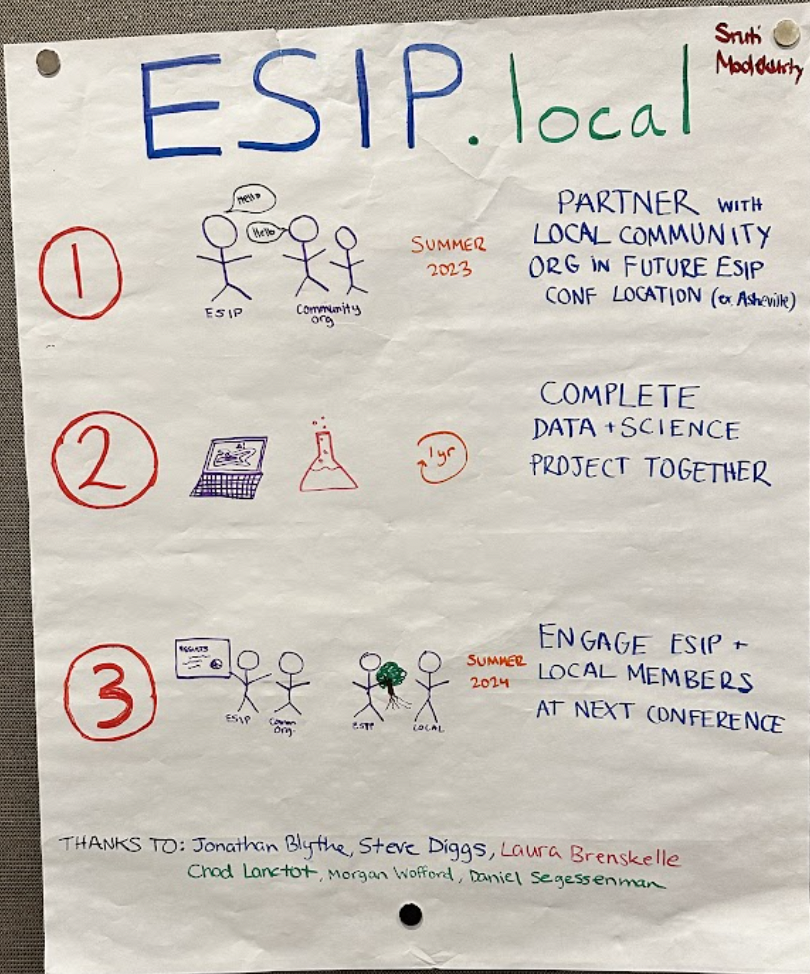 Sruti
Moddurty
ESIP.local
1
Hello
Hello
ESIP
Community
org
SUMMER
2023
PARTNER WITH
LOCAL COMMUNITY
ORG IN FUTURE ESIP
CONF LOCATION (ex. Asheville)
2
1yr
COMPLETE
DATA + SCIENCE
PROJECT TOGETHER
3
RESULTS
ESIP
Comm
Org.
ESIP
LOCAL
SUMMER
2024
ENGAGE ESIP +
LOCAL MEMBERS
AT NEXT CONFERENCE
THANKS TO: Jonathan Blythe, Steve Diggs, Laura Brenskelle
Chad Lanctot, Morgan Wofford, Daniel Segessenman